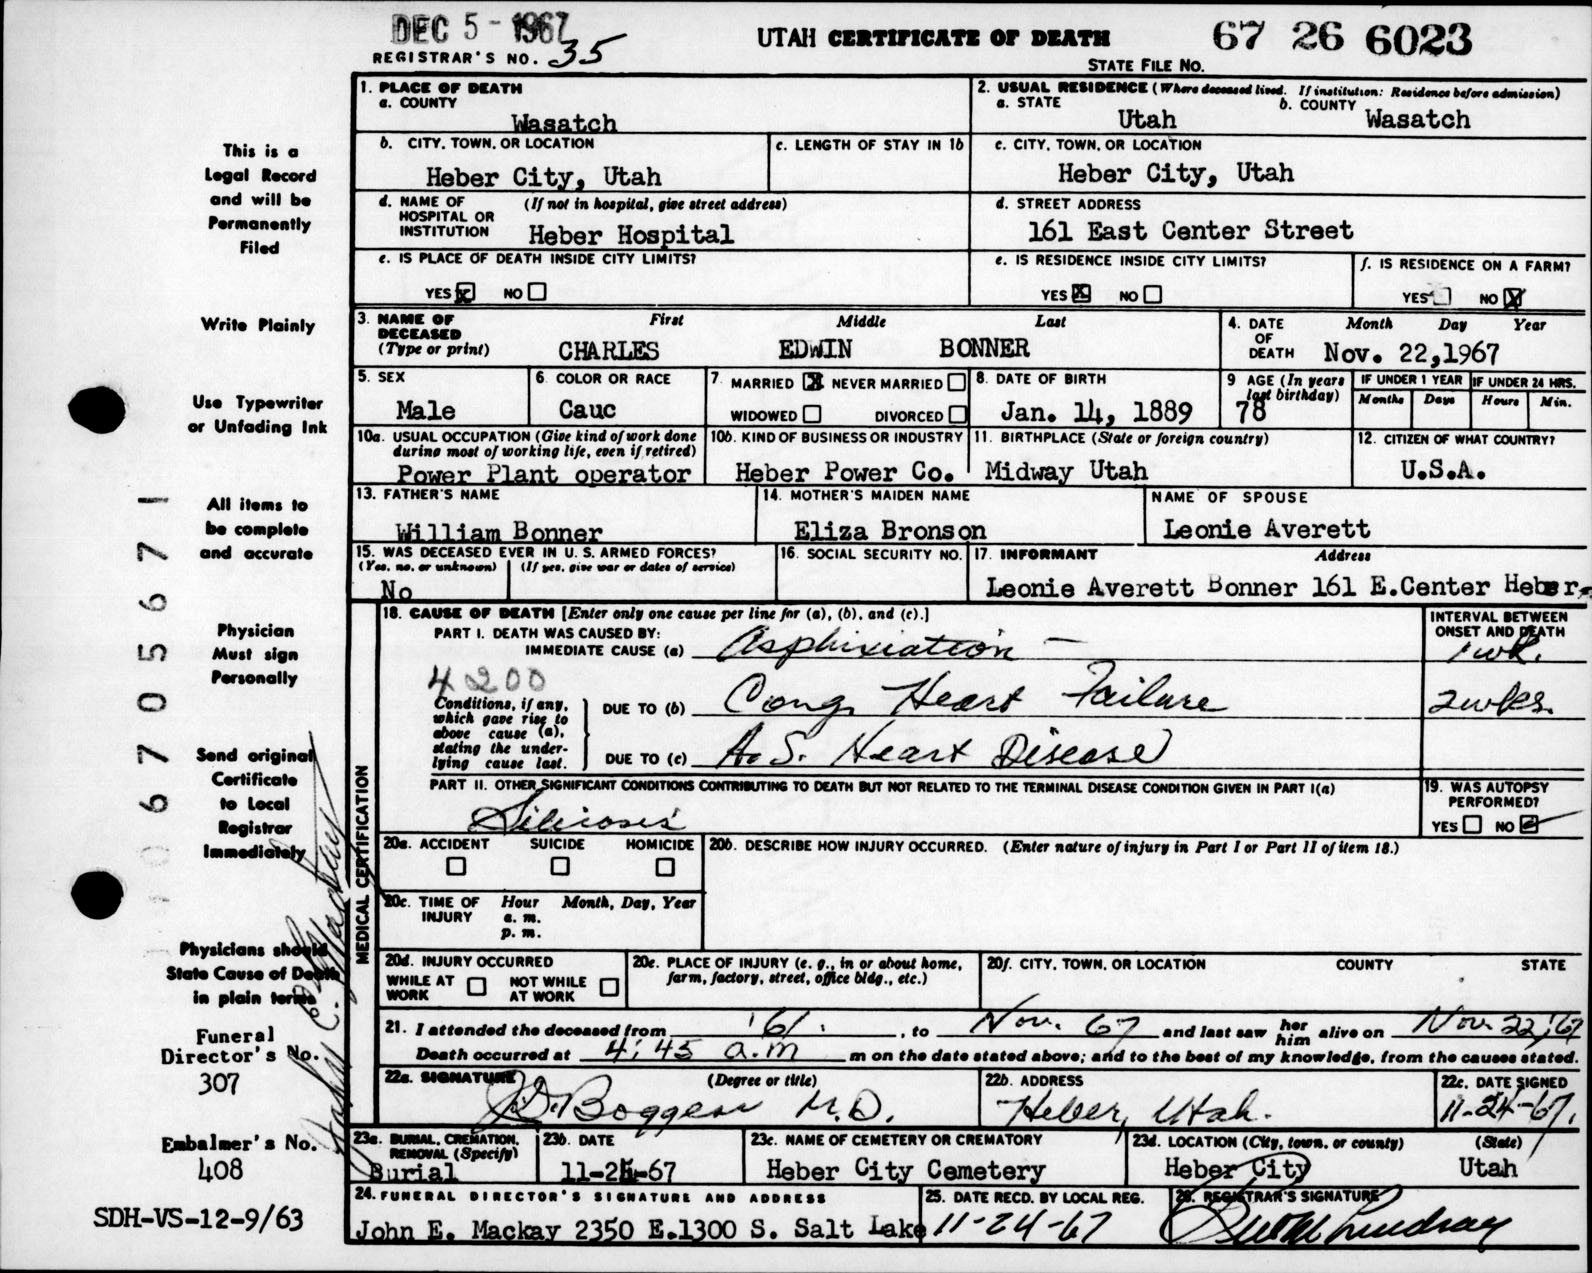 DEC 5 - 1967
REGISTRAR'S NO. 35
UTAH CERTIFICATE OF DEATH
67 26 6023
STATE FILE NO.
This is a
Legal Record
and will be
Permanently
Filed
Write Plainly
Use Typewriter
or Unfading Ink
All items to
be complete
and accurate
Physician
Must sign
Personally
Send original
Certificate
to Local
Registrar
Immediately
Physicians should
State Cause of Death
in plain terms
Funeral
Director's No.
307
Embalmer's No.
408
SDH-VS-12-9/63
0670567 1
1. PLACE OF DEATH
a. COUNTY
Wasatch
2. USUAL RESIDENCE (Where deceased lived. If institution: Residence before admission)
a. STATE b. COUNTY
Utah Wasatch
b. CITY, TOWN, OR LOCATION
Heber City, Utah
c. LENGTH OF STAY IN 1b
c. CITY, TOWN, OR LOCATION
Heber City, Utah
d. NAME OF (If not in hospital, give street address)
HOSPITAL OR
INSTITUTION Heber Hospital
d. STREET ADDRESS
161 East Center Street
e. IS PLACE OF DEATH INSIDE CITY LIMITS?
YES x NO
e. IS RESIDENCE INSIDE CITY LIMITS?
YES X NO
f. IS RESIDENCE ON A FARM?
YES NO X
3. NAME OF First Middle Last
DECEASED
(Type or print) CHARLES EDWIN BONNER
4. DATE Month Day Year
OF
DEATH Nov. 22,1967
5. SEX
Male
6. COLOR OR RACE
Cauc
7 MARRIED X NEVER MARRIED
WIDOWED DIVORCED
8. DATE OF BIRTH
Jan. 14, 1889
9 AGE (In years
last birthday)
78
IF UNDER 1 YEAR IF UNDER 24 HRS.
Months Days Hours Min.
10a. USUAL OCCUPATION (Give kind of work done
during most of working life, even if retired)
Power Plant operator
10b. KIND OF BUSINESS OR INDUSTRY
Heber Power Co.
11. BIRTHPLACE (State or foreign country)
Midway Utah
12. CITIZEN OF WHAT COUNTRY?
U.S.A.
13. FATHER'S NAME
William Bonner
14. MOTHER'S MAIDEN NAME
Eliza Bronson
NAME OF SPOUSE
Leonie Averett
15. WAS DECEASED EVER IN U. S. ARMED FORCES?
(Yes, no, or unknown) (If yes, give war or dates of service)
No
16. SOCIAL SECURITY NO.
17. INFORMANT Address
Leonie Averett Bonner 161 E.Center Heber,
MEDICAL CERTIFICATION
18. CAUSE OF DEATH [Enter only one cause per line for (a), (b), and (c).]
PART I. DEATH WAS CAUSED BY:
IMMEDIATE CAUSE (a) Asphixiation —
INTERVAL BETWEEN
ONSET AND DEATH
1 wk.
4200
Conditions, if any,
which gave rise to
above cause (a),
stating the under-
lying cause last.
DUE TO (b) Cong. Heart Failure 2 wks.
DUE TO (c) A. S. Heart Disease
PART II. OTHER SIGNIFICANT CONDITIONS CONTRIBUTING TO DEATH BUT NOT RELATED TO THE TERMINAL DISEASE CONDITION GIVEN IN PART I(a)
Silicosis
19. WAS AUTOPSY
PERFORMED?
YES NO ✓
20a. ACCIDENT SUICIDE HOMICIDE
20b. DESCRIBE HOW INJURY OCCURRED. (Enter nature of injury in Part I or Part II of item 18.)
20c. TIME OF Hour Month, Day, Year
INJURY a. m.
p. m.
20d. INJURY OCCURRED
WHILE AT NOT WHILE
WORK AT WORK
20e. PLACE OF INJURY (e. g., in or about home,
farm, factory, street, office bldg., etc.)
20f. CITY, TOWN, OR LOCATION COUNTY STATE
21. I attended the deceased from '61. , to Nov. 67 and last saw her him alive on Nov. 22, '67
Death occurred at 4:45 a.m m on the date stated above; and to the best of my knowledge, from the causes stated.
22a. SIGNATURE (Degree or title)
Boggess M.D.
22b. ADDRESS
Heber, Utah.
22c. DATE SIGNED
11-24-67.
23a. BURIAL, CREMATION,
REMOVAL (Specify)
Burial
23b. DATE
11-25-67
23c. NAME OF CEMETERY OR CREMATORY
Heber City Cemetery
23d. LOCATION (City, town, or county) (State)
Heber City Utah
24. FUNERAL DIRECTOR'S SIGNATURE AND ADDRESS
John E. Mackay 2350 E.1300 S. Salt Lake
25. DATE RECD. BY LOCAL REG.
11-24-67
26. REGISTRAR'S SIGNATURE
Lindsay